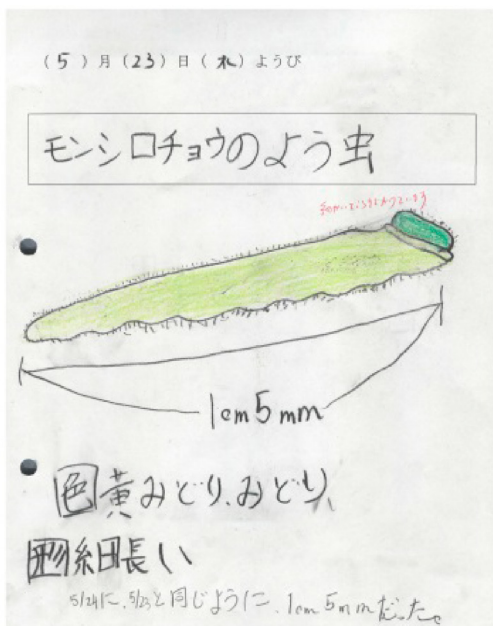 (5)月(23)日(水)ようび
モンシロチョウのよう虫
1cm5mm
色 黄みどり、みどり
形 細長い
5/24に、5/23と同じように、1cm5mmだった。